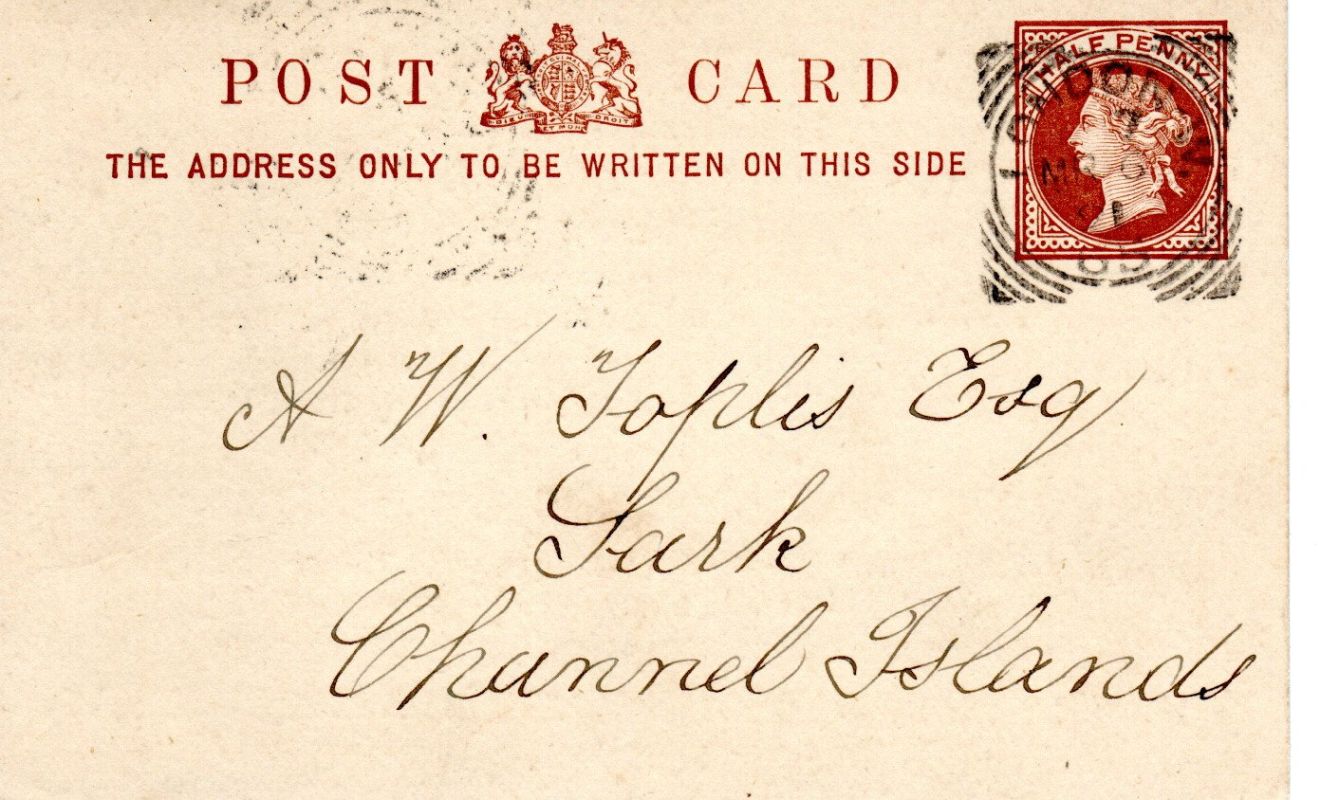 POST CARD
DIEU ET MON DROIT
THE ADDRESS ONLY TO BE WRITTEN ON THIS SIDE
HALF PENNY
LONDON W
7
MR 6
91
A W. Toplis Esq
Sark
Channel Islands